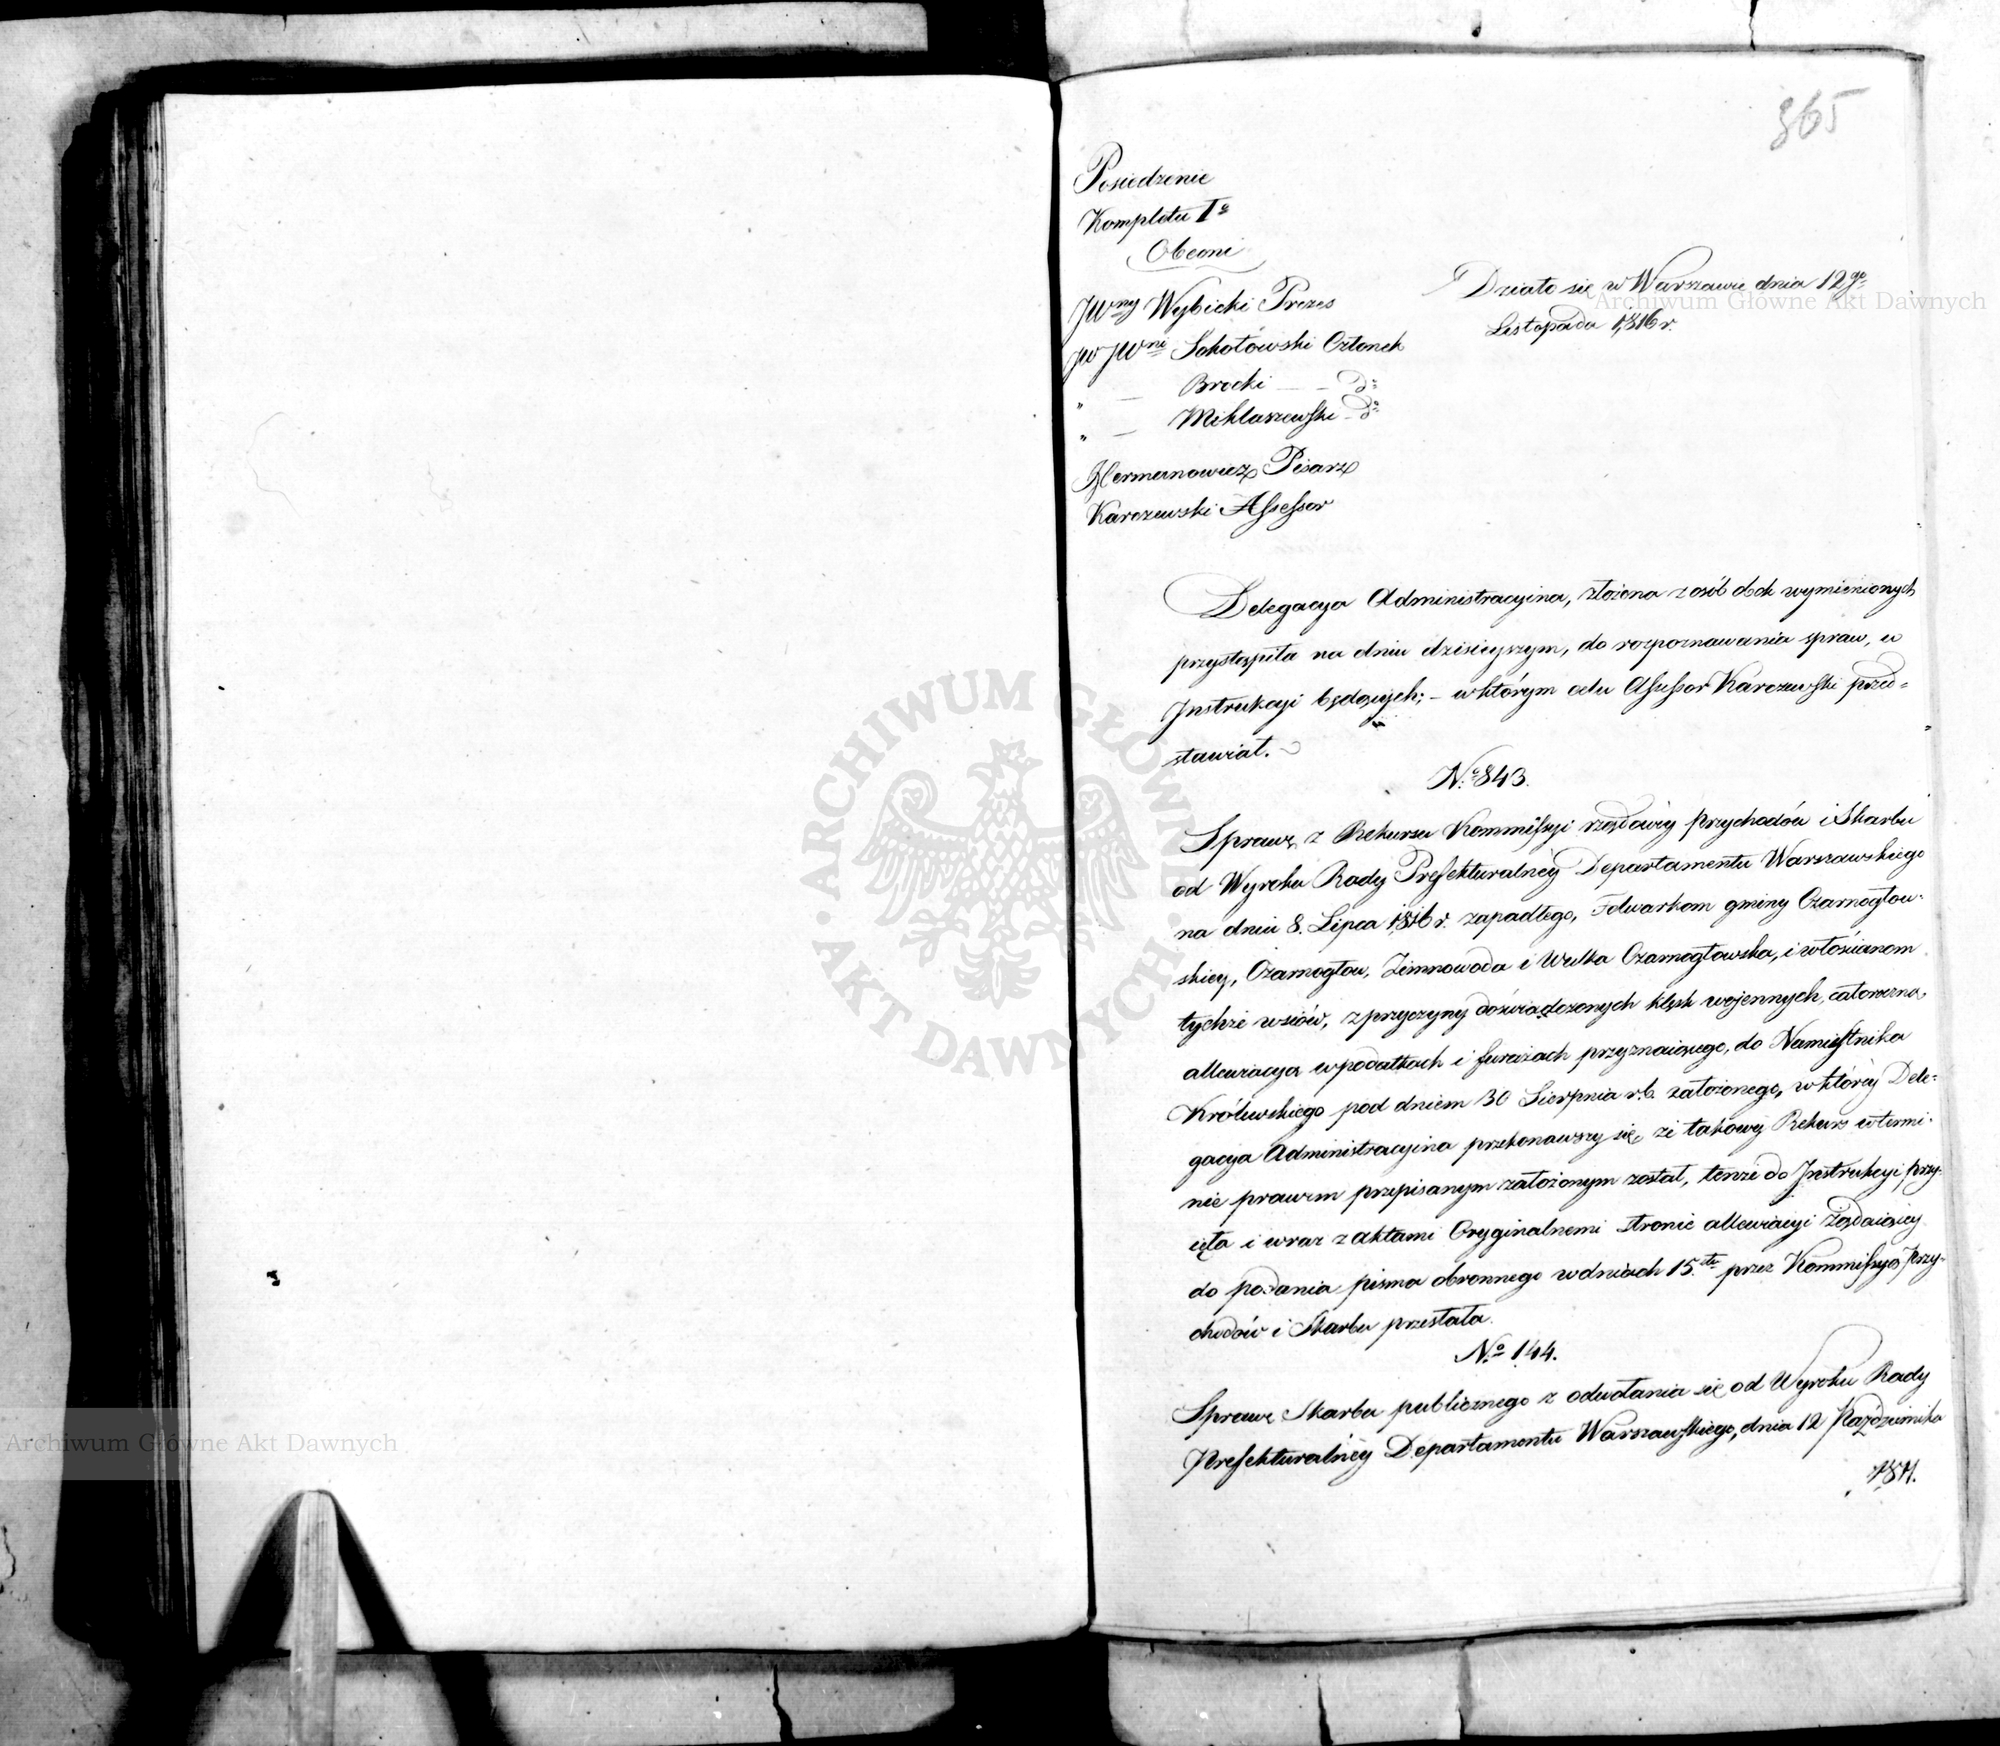 365
Posiedzenie
Kompletu Iº
Obecni
JWny Wybicki Prezes
Działo się w Warszawie dnia 12go
Listopada 1816 r.
JW JWni Sokołowski Członek
" — Brocki — — dº
" — Miklaszewski — dº
Hermanowicz Pisarz
Karczewski Assessor
Delegacya Administracyina, złożona z osób obok wymienionych
przystąpiła na dniu dzisieyszym, do rozpoznawania spraw, w
Instrukcyi będących; – w którym celu Assessor Karczewski przed=
stawiał.
Nº 843.
Sprawę z Rekursu Kommissyi rządowéy przychodów i Skarbu
od Wyroku Rady Prefekturalnéy Departamentu Warszawskiego
na dniu 8. Lipca 1816 r. zapadłego, Folwarkom gminy Czarnogłow-
skiey, Czarnogłow, Zimnowoda i Wulka Czarnogłowska, i włościanom
tychże wsiów, z przyczyny doświadczonych klęsk wojennych, całoroczną
allewiacyą w podatkach i furażach przyznaiącego, do Namiestnika
Królewskiego pod dniem 30 Sierpnia r.b. założonego, w któréy Dele=
gacya Administracyina przekonawszy się, że takowy Rekurs w termi-
nie prawem przepisanym założonym został, tenże do Instrukcyi przy-
ięła i wraz z aktami Oryginalnemi stronie allewiacyi żądaiącey
do podania pisma obronnego w dniach 15stu przez Kommissyą Przy-
chodów i Skarbu przesłała.
Nº 144.
Sprawę Skarbu publicznego z odwołania się od Wyroku Rady
Prefekturalnéy Departamentu Warszawskiego, dnia 12 Października
1811.
Archiwum Główne Akt Dawnych
ARCHIWUM GŁÓWNE AKT DAWNYCH
Archiwum Główne Akt Dawnych